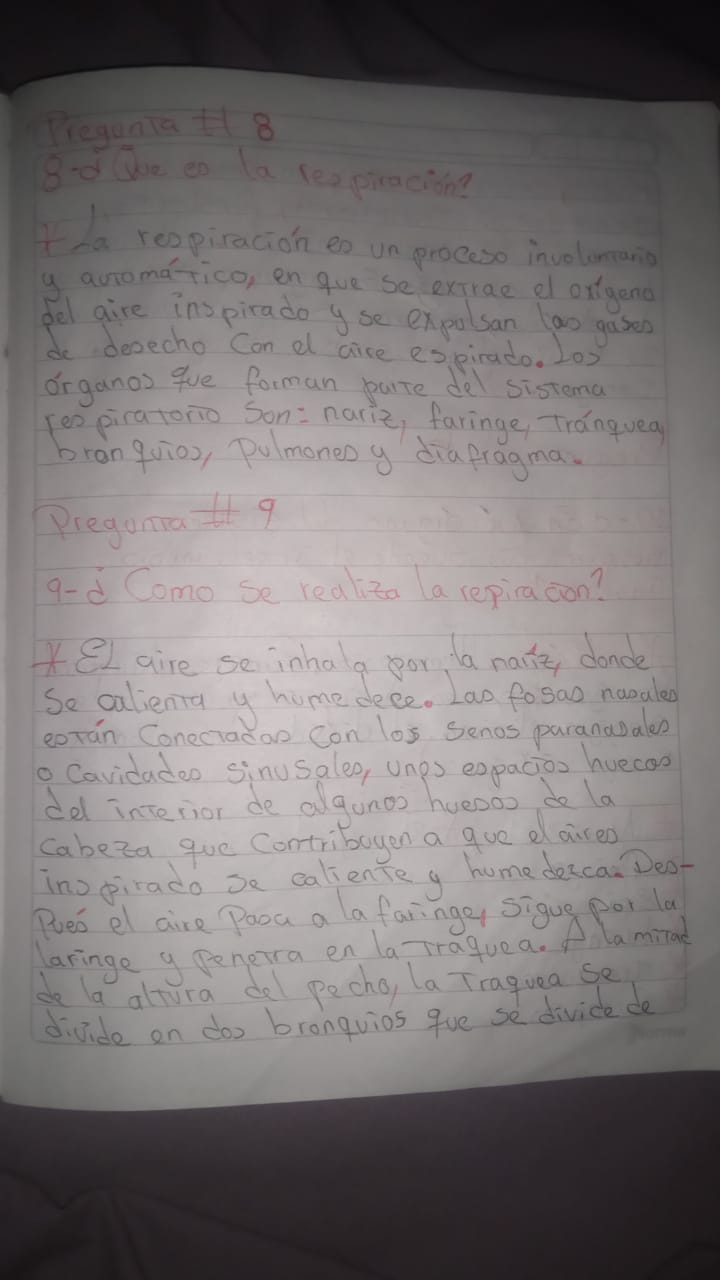 Pregunta # 8
8-¿Que es la respiración?
* La respiración es un proceso involuntario
y automático, en que se extrae el oxígeno
del aire inspirado y se expulsan los gases
de desecho con el aire espirado. Los
órganos que forman parte del sistema
respiratorio son: nariz, faringe, tránquea,
branquios, pulmones y diafragma.
Pregunta # 9
9-¿Como se realiza la repiracion?
* El aire se inhala por la nariz, donde
se calienta y humedece. Las fosas nasales
están conectadas con los senos paranasales
o cavidades sinusales, unos espacios huecos
del interior de algunos huesos de la
cabeza que contribuyen a que el aires
inspirado se caliente y humedezca. Des-
pués el aire pasa a la faringe, sigue por la
laringe y penetra en la traquea. A la mitad
de la altura del pecho, la traquea se
divide en dos bronquios que se divide de